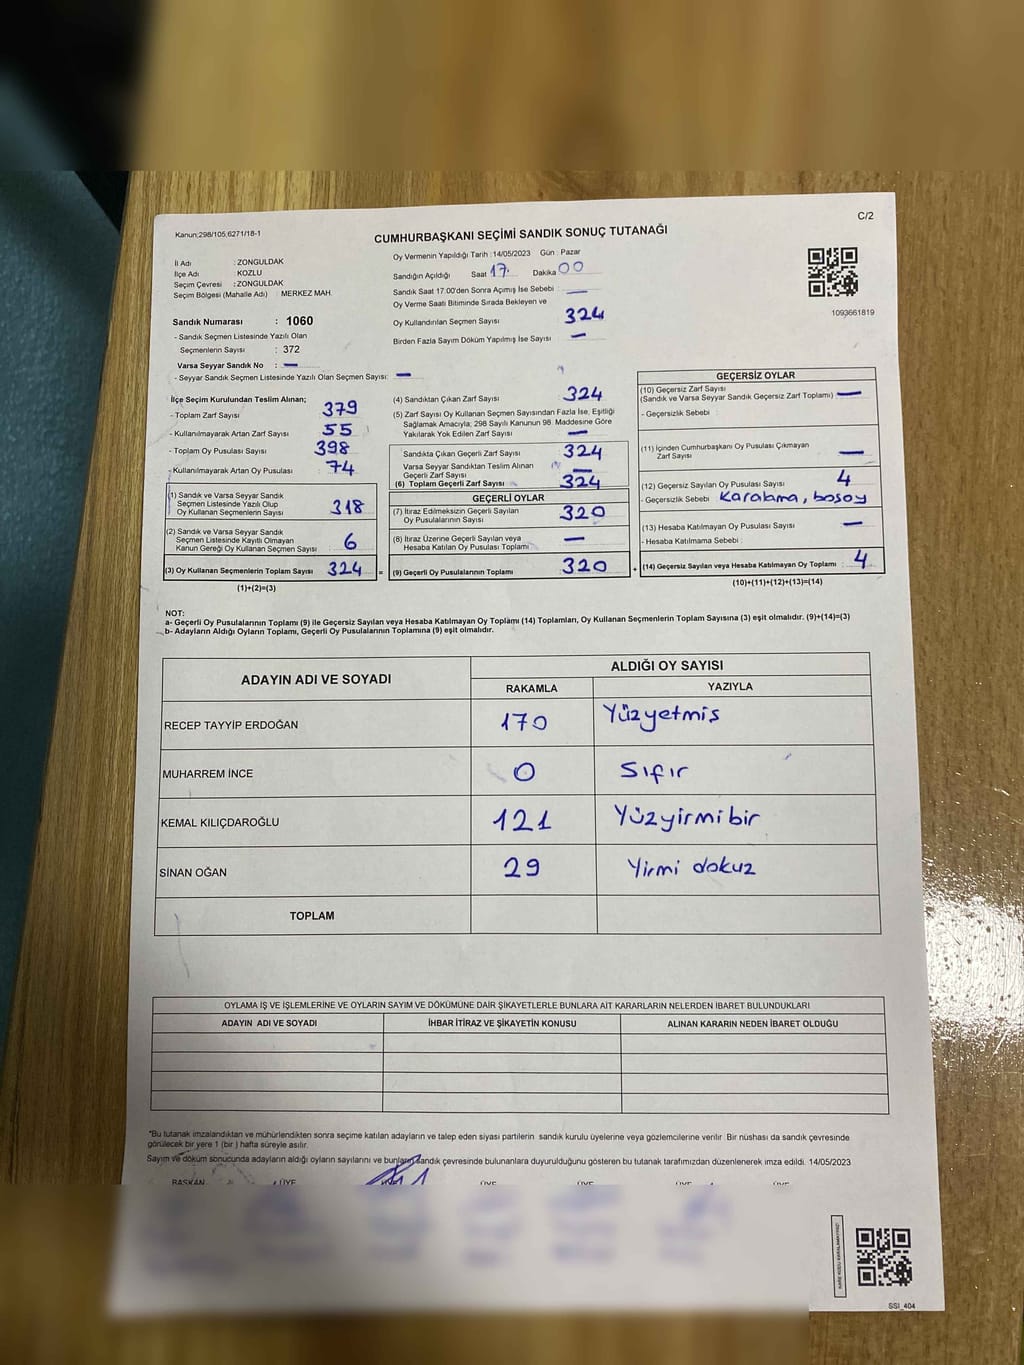 C/2
Kanun:298/105,6271/18-1
CUMHURBAŞKANI SEÇİMİ SANDIK SONUÇ TUTANAĞI
İl Adı : ZONGULDAK
İlçe Adı : KOZLU
Seçim Çevresi : ZONGULDAK
Seçim Bölgesi (Mahalle Adı) : MERKEZ MAH.
Oy Vermenin Yapıldığı Tarih :14/05/2023 Gün : Pazar
Sandığın Açıldığı Saat 17. Dakika 00
Sandık Saat 17.00'den Sonra Açımış İse Sebebi : —
Oy Verme Saati Bitiminde Sırada Bekleyen ve
Oy Kullandırılan Seçmen Sayısı 324
Birden Fazla Sayım Döküm Yapılmış İse Sayısı —
1093661819
Sandık Numarası : 1060
- Sandık Seçmen Listesinde Yazılı Olan
Seçmenlerin Sayısı : 372
Varsa Seyyar Sandık No : —
- Seyyar Sandık Seçmen Listesinde Yazılı Olan Seçmen Sayısı: —
İlçe Seçim Kurulundan Teslim Alınan;
- Toplam Zarf Sayısı 379
- Kullanılmayarak Artan Zarf Sayısı 55
- Toplam Oy Pusulası Sayısı 398
- Kullanılmayarak Artan Oy Pusulası 74
(1) Sandık ve Varsa Seyyar Sandık
Seçmen Listesinde Yazılı Olup
Oy Kullanan Seçmenlerin Sayısı 318
(2) Sandık ve Varsa Seyyar Sandık
Seçmen Listesinde Kayıtlı Olmayan
Kanun Gereği Oy Kullanan Seçmen Sayısı 6
(3) Oy Kullanan Seçmenlerin Toplam Sayısı 324 =
(1)+(2)=(3)
(4) Sandıktan Çıkan Zarf Sayısı 324
(5) Zarf Sayısı Oy Kullanan Seçmen Sayısından Fazla İse, Eşitliği
Sağlamak Amacıyla; 298 Sayılı Kanunun 98. Maddesine Göre
Yakılarak Yok Edilen Zarf Sayısı —
Sandıkta Çıkan Geçerli Zarf Sayısı 324
Varsa Seyyar Sandıktan Teslim Alınan
Geçerli Zarf Sayısı —
(6) Toplam Geçerli Zarf Sayısı 324
GEÇERLİ OYLAR
(7) İtiraz Edilmeksizin Geçerli Sayılan
Oy Pusulalarının Sayısı 320
(8) İtiraz Üzerine Geçerli Sayılan veya
Hesaba Katılan Oy Pusulası Toplamı —
(9) Geçerli Oy Pusulalarının Toplamı 320 +
GEÇERSİZ OYLAR
(10) Geçersiz Zarf Sayısı
(Sandık ve Varsa Seyyar Sandık Geçersiz Zarf Toplamı) —
- Geçersizlik Sebebi :
(11) İçinden Cumhurbaşkanı Oy Pusulası Çıkmayan
Zarf Sayısı —
(12) Geçersiz Sayılan Oy Pusulası Sayısı 4
- Geçersizlik Sebebi Karalama, bosoy
(13) Hesaba Katılmayan Oy Pusulası Sayısı —
- Hesaba Katılmama Sebebi :
(14) Geçersiz Sayılan veya Hesaba Katılmayan Oy Toplamı : 4
(10)+(11)+(12)+(13)=(14)
NOT:
a- Geçerli Oy Pusulalarının Toplamı (9) ile Geçersiz Sayılan veya Hesaba Katılmayan Oy Toplamı (14) Toplamları, Oy Kullanan Seçmenlerin Toplam Sayısına (3) eşit olmalıdır. (9)+(14)=(3)
b- Adayların Aldığı Oyların Toplamı, Geçerli Oy Pusulalarının Toplamına (9) eşit olmalıdır.
ADAYIN ADI VE SOYADI
ALDIĞI OY SAYISI
RAKAMLA YAZIYLA
RECEP TAYYİP ERDOĞAN 170 Yüzyetmis
MUHARREM İNCE 0 Sıfır
KEMAL KILIÇDAROĞLU 121 Yüzyirmibir
SİNAN OĞAN 29 Yirmi dokuz
TOPLAM
OYLAMA İŞ VE İŞLEMLERİNE VE OYLARIN SAYIM VE DÖKÜMÜNE DAİR ŞİKAYETLERLE BUNLARA AİT KARARLARIN NELERDEN İBARET BULUNDUKLARI
ADAYIN ADI VE SOYADI İHBAR İTİRAZ VE ŞİKAYETİN KONUSU ALINAN KARARIN NEDEN İBARET OLDUĞU
*Bu tutanak imzalandıktan ve mühürlendikten sonra seçime katılan adayların ve talep eden siyasi partilerin sandık kurulu üyelerine veya gözlemcilerine verilir. Bir nüshası da sandık çevresinde
görülecek bir yere 1 (bir ) hafta süreyle asılır.
Sayım ve döküm sonucunda adayların aldığı oyların sayılarını ve bunların sandık çevresinde bulunanlara duyurulduğunu gösteren bu tutanak tarafımızdan düzenlenerek imza edildi. 14/05/2023
BAŞKAN ÜYE ÜYE ÜYE ÜYE ÜYE
SSI_404